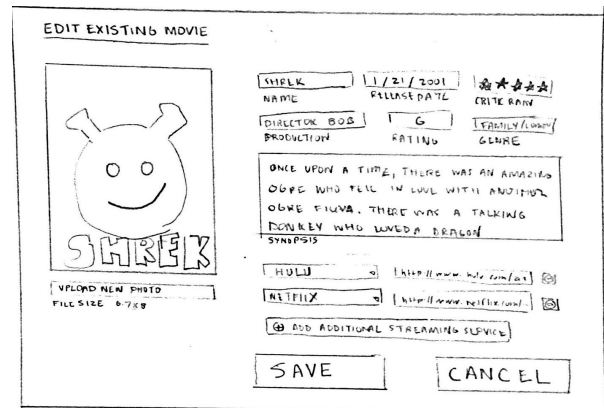 EDIT EXISTING MOVIE
SHREK
UPLOAD NEW PHOTO
FILE SIZE 6.7KB
SHREK 1/21/2001
NAME RELEASE DATE CRITIC RANK
DIRECTOR BOB G FAMILY/
PRODUCTION RATING GENRE
ONCE UPON A TIME, THERE WAS AN AMAZING
OGRE WHO FELL IN LOVE WITH ANOTHER
OGRE FIONA. THERE WAS A TALKING
DONKEY WHO LOVED A DRAGON
SYNOPSIS
HULU http://www.hulu.com/
NETFLIX http://www.netflix.com/
ADD ADDITIONAL STREAMING SERVICE
SAVE CANCEL